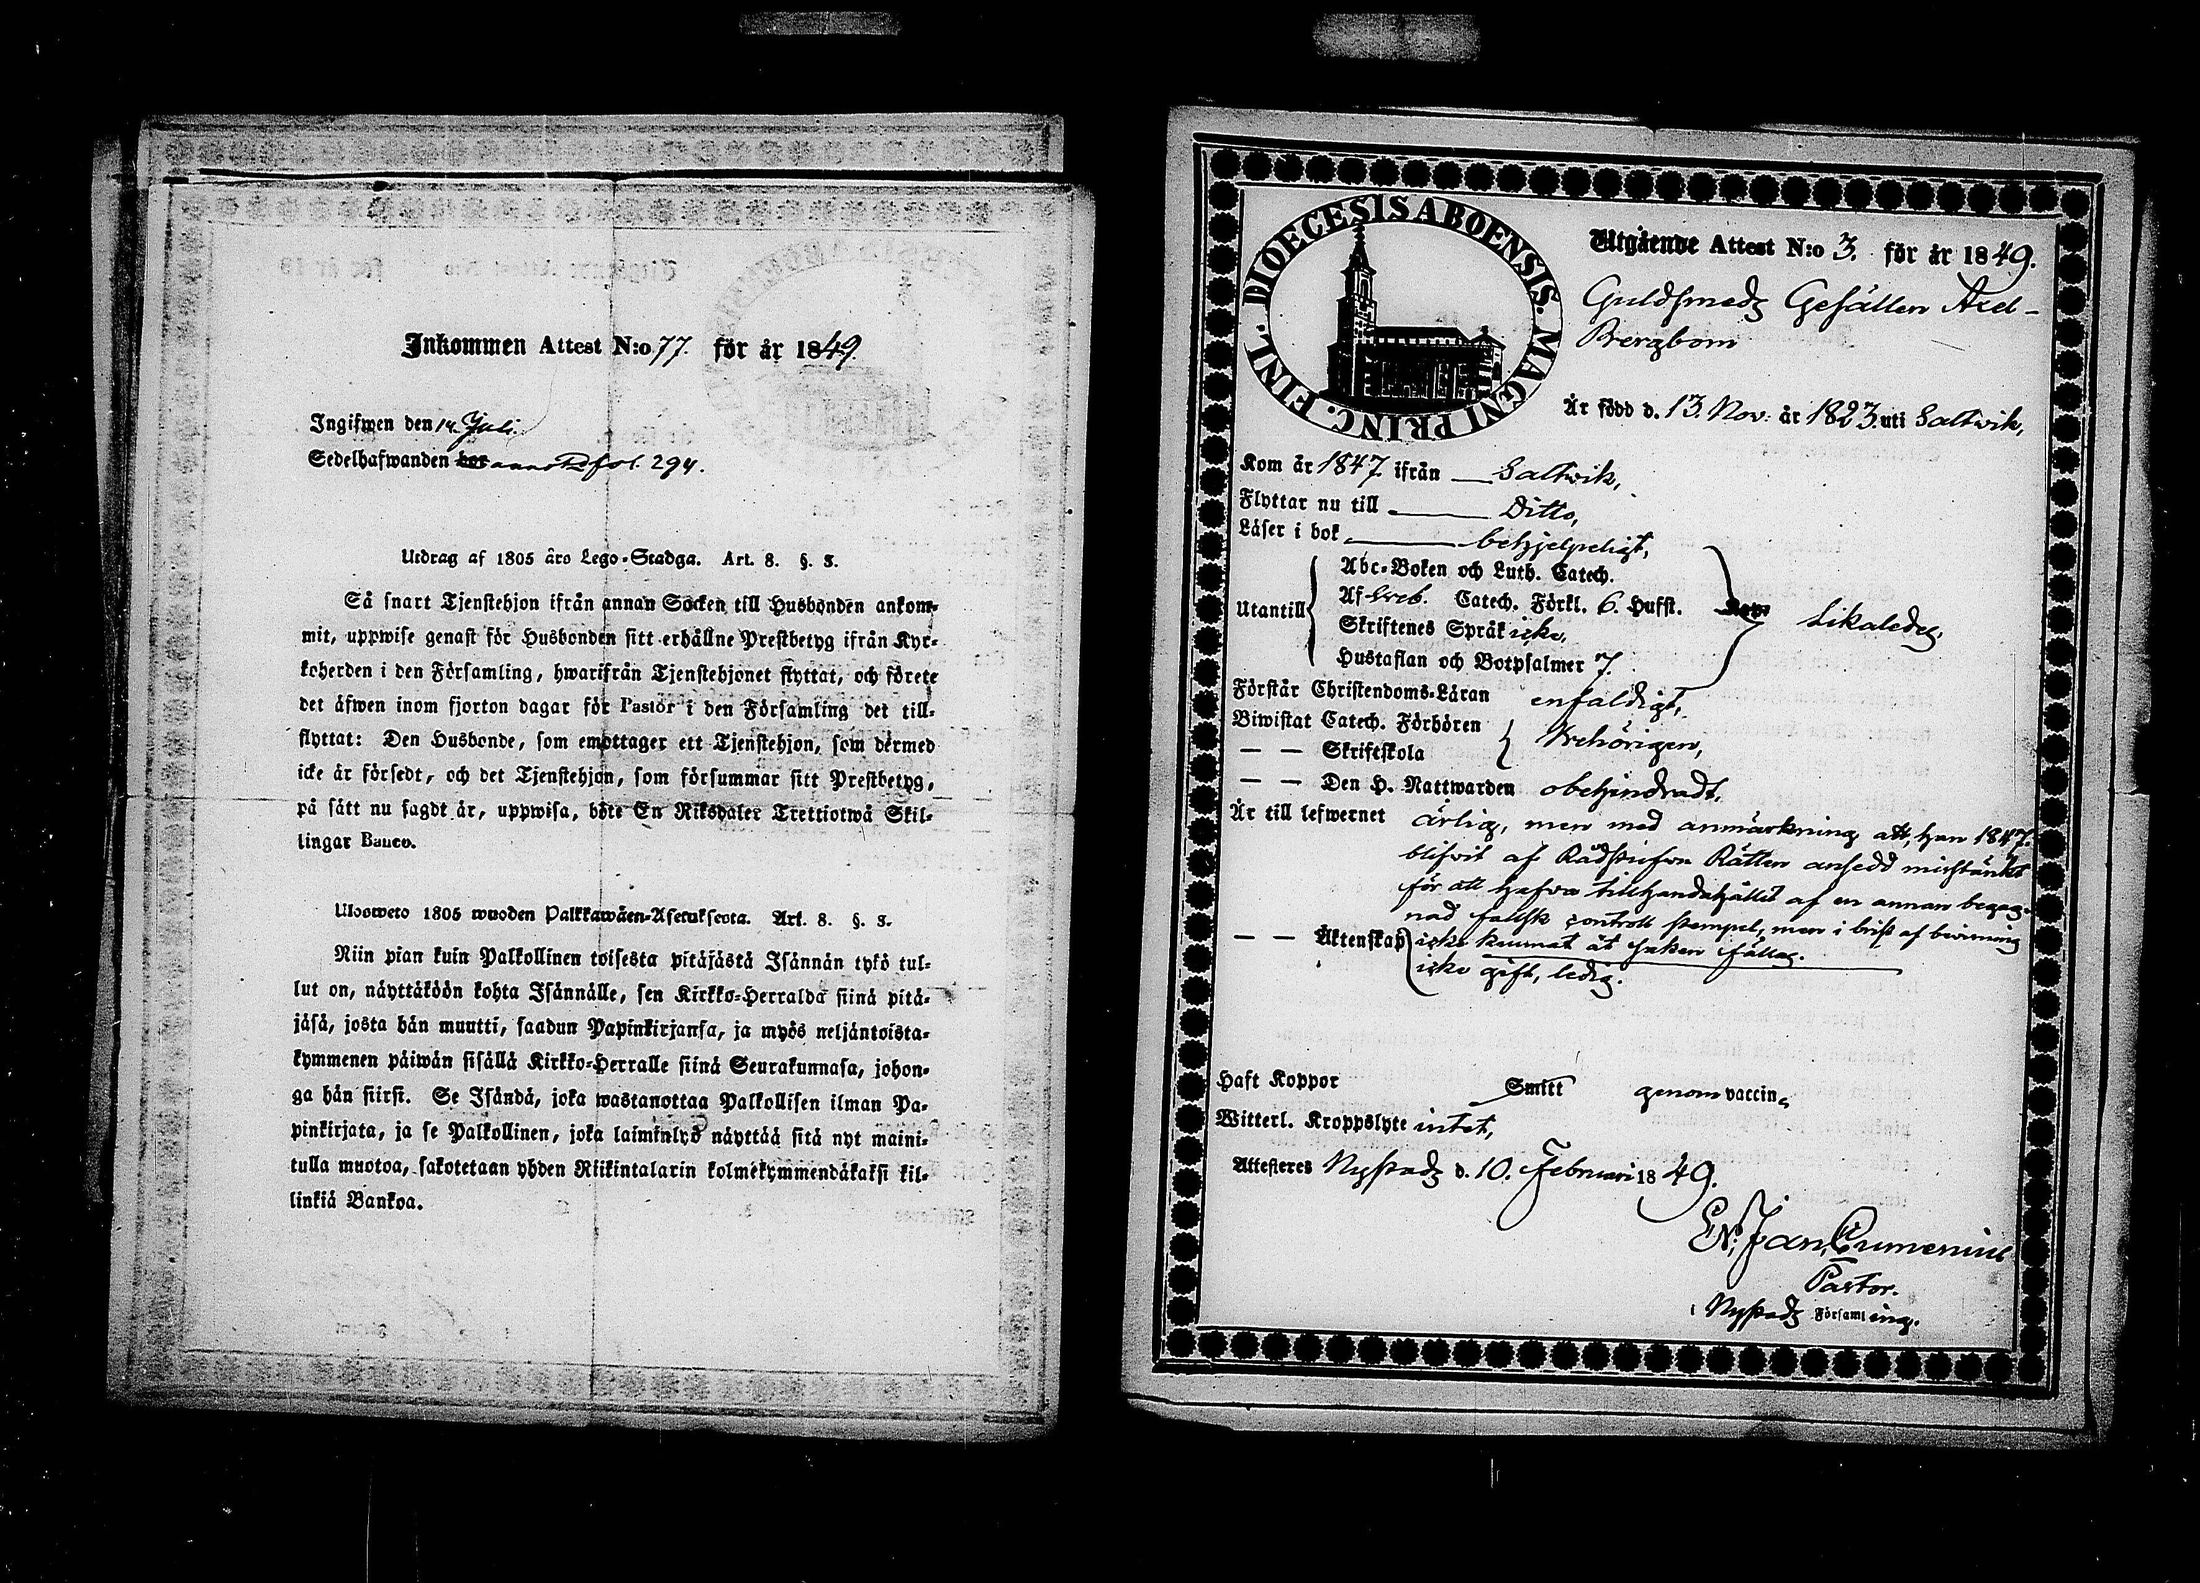 Inkommen Attest N:o 77. för år 1849.
Ingifwen den 14 Juli.
Sedelhafwanden fol. 294.
Utdrag af 1805 års Lego-Stadga. Art. 8. §. 3.
Så snart Tjenstehjon ifrån annan Socken till Husbonden ankom-
mit, uppwise genast för Husbonden sitt erhållne Prestbetyg ifrån Kyr-
koherden i den Församling, hwarifrån Tjenstehjonet flyttat, och förete
det äfwen inom fjorton dagar för Pastor i den Församling det till-
flyttat: Den Husbonde, som emottager ett Tjenstehjon, som dermed
icke är försedt, och det Tjenstehjon, som försummar sitt Prestbetyg,
på sätt nu sagdt är, uppwisa, böte En Riksdaler Trettiotwå Skil-
lingar Banco.
Ulosweto 1805 wuoden Palkkawäen-Asetuksesta. Art. 8. §. 3.
Niin pian kuin Palkollinen toisesta pitäjästä Isännän tykö tul-
lut on, näyttäköön kohta Isännälle, sen Kirkko-Herralda siinä pitä-
jäsä, josta hän muutti, saadun Papinkirjansa, ja myös neljäntoista-
kymmenen päiwän sisällä Kirkko-Herralle siinä Seurakunnasa, johon-
ga hän siirsi. Se Isändä, joka wastanottaa Palkollisen ilman Pa-
pinkirjata, ja se Palkollinen, joka laiminlyö näyttää sitä nyt maini-
tulla muotoa, sakotetaan yhden Riikintalarin kolmekymmendäkaksi kil-
linkiä Bankoa.
DIOECESIS ABOENSIS. MAGNI PRINC. FINL.
Utgående Attest N:o 3. för år 1849.
Guldsmeds Gesällen Axel
Bergbom
Är född d. 13. Nov. år 1823 uti Saltwik,
Kom år 1847 ifrån Saltwik,
Flyttar nu till Ditto,
Läser i bok behjelpeligt,
Utantill
Abc-Boken och Luth. Catech.
Af Sveb. Catech. Förkl. 6. Hufst.
Skriftenes Språk icke,
Hustaflan och Botpsalmer 7.
Likaledes,
Förstår Christendoms-Läran enfaldigt,
Biwistat Catech. Förhören
— — Skriftskola
behörigen,
— — Den H. Nattwarden obehindradt,
Är till lefwernet ärlig, men med anmärkning att, han 1847.
blifvit af Rådstufvu Rätten ansedd misstänkt
för att hafva tillhandahållit af en annan begag-
nad falsk controll stempel, men i brist af bevisning
icke kunnat åt saken fällas.
— — Äktenskap icke gift, ledig.
Haft Koppor Smitt genom vaccin,
Witterl. Kroppslyte intet,
Attesteres Nystads d. 10. Februari 1849.
Pastor.
i Nystads Församling.